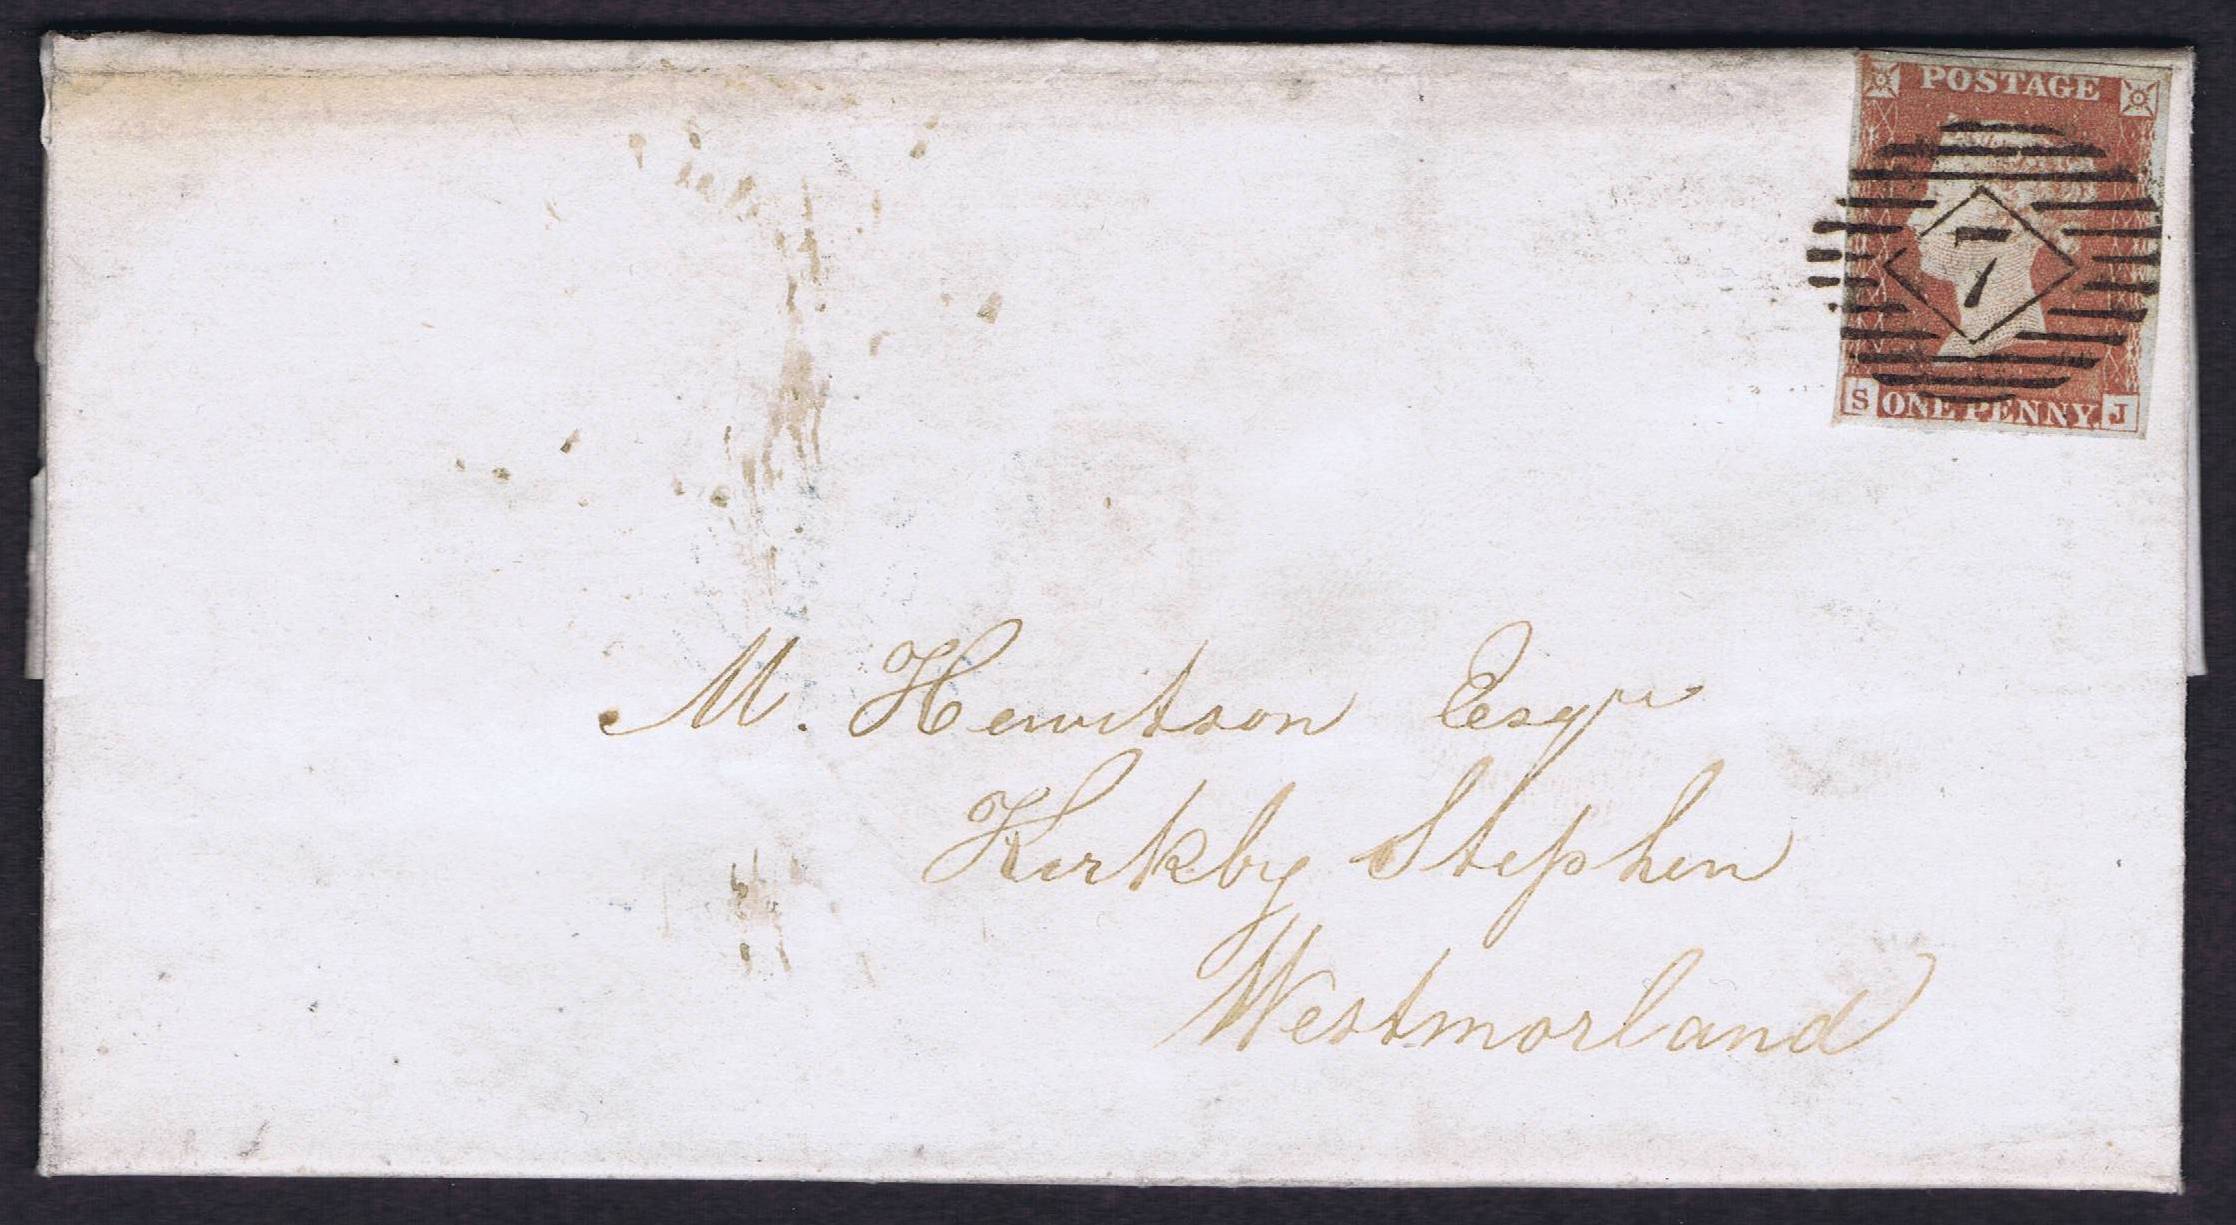 POSTAGE
7
S ONE PENNY. J
M. Hewitson Esqr
Kirkby Stephen
Westmorland